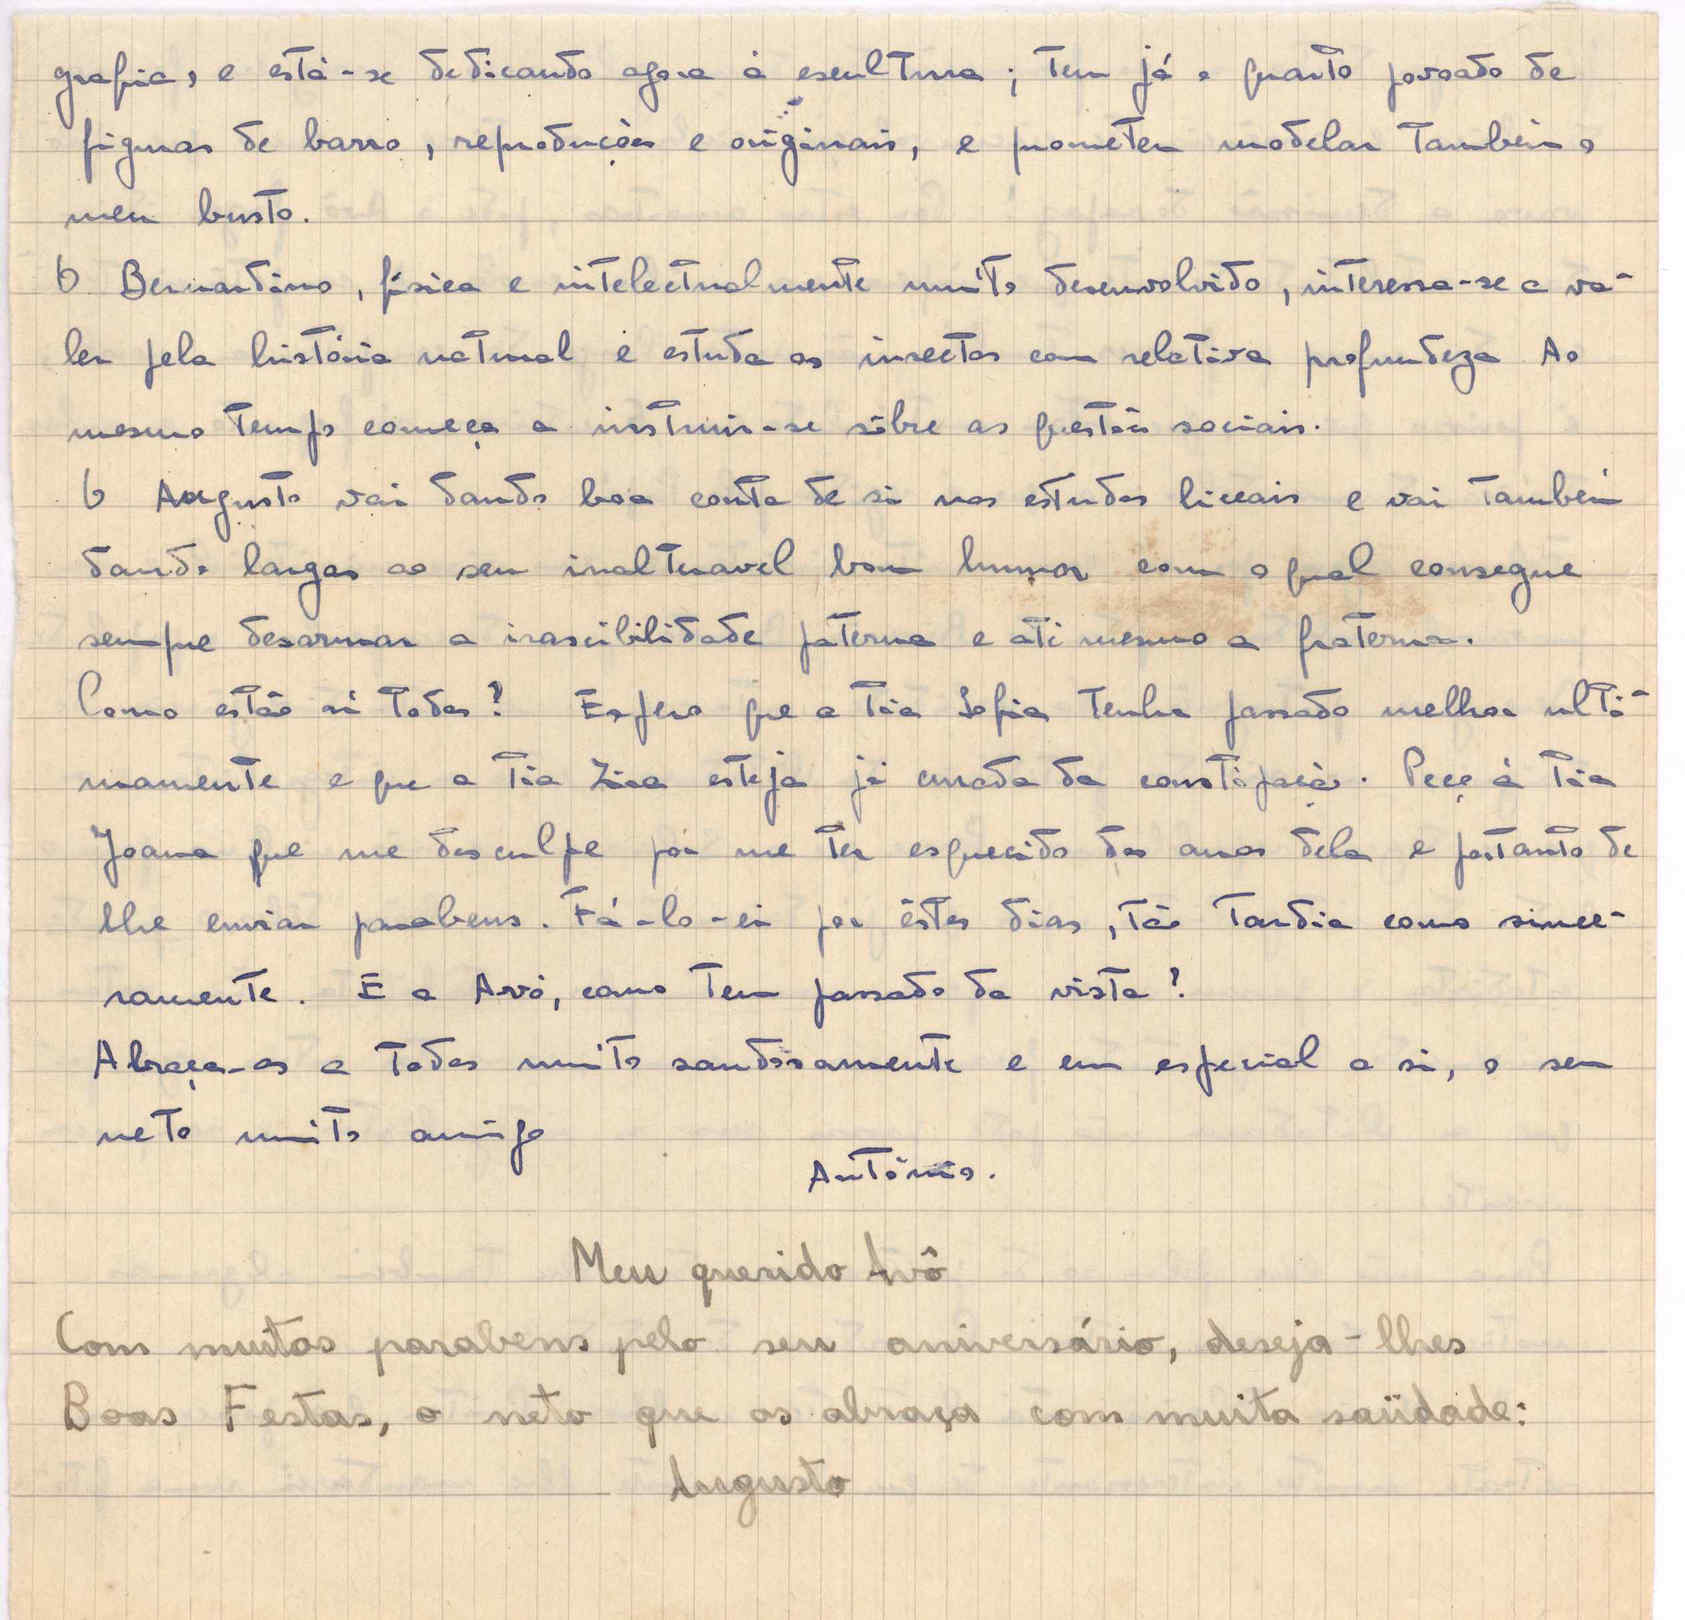 grafia, e está-se dedicando agora à escultura; tem já o quarto povoado de
figuras de barro, reproduções e originais, e prometeu modelar também o
meu busto.
O Bernardino, física e intelectualmente muito desenvolvido, interessa-se a va-
ler pela história natural e estuda os insectos com relativa profundeza Ao
mesmo tempo começa a instruir-se sôbre as questões sociais.
O Augusto vai dando boa conta de si nos estudos liceais e vai também
dando largas ao seu inalteravel bom humor com o qual consegue
sempre desarmar a irascibilidade paterna e até mesmo a fraterna.
Como estão aí todos? Espero que a tia Sofia tenha passado melhor ulti-
mamente e que a tia Zica esteja já curada da constipação. Peço à tia
Joana que me desculpe por me ter esquecido dos anos dela e portanto de
lhe enviar parabens. Fá-lo-ei por êstes dias, tão tardia como since-
ramente. E a Avó, como tem passado da vista?
Abraça-os a todos muito saudosamente e em especial a si, o seu
neto muito amigo
António.
Meu querido Avô
Com muitos parabens pelo seu aniversário, deseja-lhes
Boas Festas, o neto que os abraça com muita saüdade:
Augusto